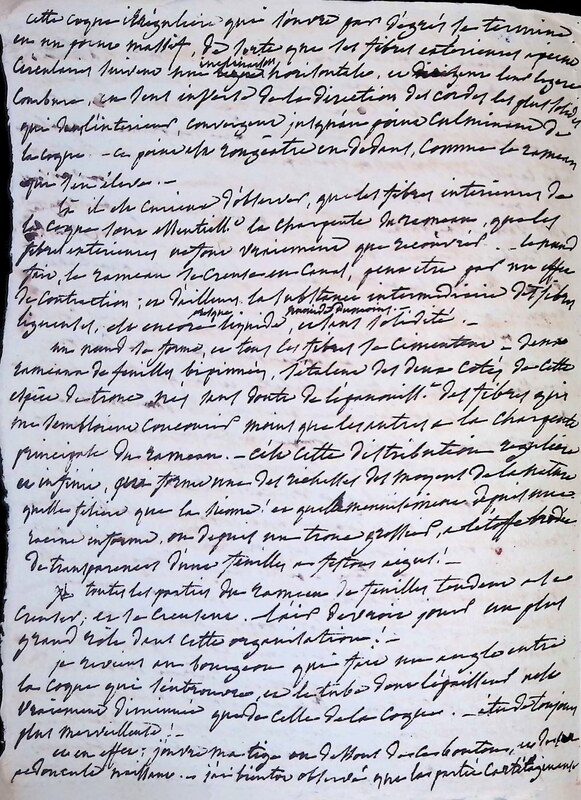 cette coque irrégulière qui s'ouvre par degrés se termine
en un point massif, de sorte que les fibres extérieures à peine
circulaires suivent une inclinaison horizontale, et dirigent leur légère
courbure, en sens inverse de la direction des cordes les plus solides
qui dans l'intérieur, convergent jusqu'au point culminant de
la coque. - ce point est rougeâtre en dedans, comme le rameau
qui s'en élève. -
là il est curieux d'observer, que les fibres intérieures de
la coque sont essentielles à la charpente du rameau, que les
fibres extérieures ne font vraiment que recouvrir. -
fait, le rameau se creuse en canal, peut être par un effet
de contraction; et d'ailleurs la substance intermédiaire des fibres
ligneuses, est encore presque liquide, et sans solidité. -
un nœud se forme, et tous les fibres se cimentent - deux
rameaux de feuilles bipinnées, s'étalent des deux côtés de cette
espèce de tronc, nés sans doute de l'épanouill.t des fibres qui
me semblent concourir moins que les autres à la charpente
principale du rameau. - cette distribution régulière
et infinie, forme une des richesses des moyens de la nature
quelle filière que la sienne! et quelle depuis une
racine informe, ou depuis un tronc grossier, à l'étoffe brodée
de transparence d'une feuille à festons aigus! -
toutes les parties du rameau de feuilles tendent à se
creuser, et se creusent. l'air devroit jouer un plus
grand rôle dans cette organisation! -
je reviens au bourgeon qui fait un angle entre
la coque qui s'entrouvre, et le tube dont l'épaisseur n'est
vraiment diminuée que de celle de la coque. - étude toujours
plus merveilleuse! -
et en effet; j'ouvre ma tige au dessous des boutons, et de
pédoncule naissant. - j'ai bientôt observé que les parties cartilagineuses